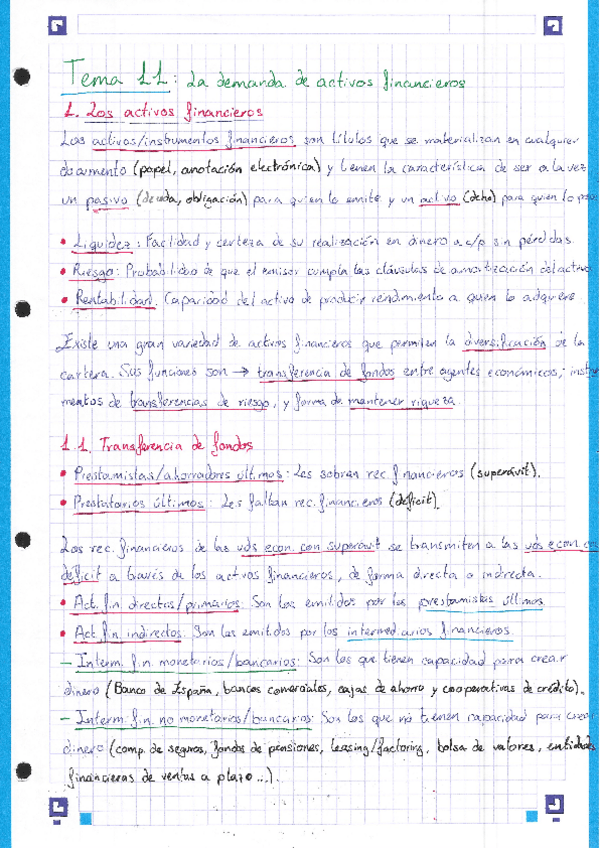 Tema 11: La demanda de activos financieros
1. Los activos financieros
Los activos/instrumentos financieros son títulos que se materializan en cualquier
documento (papel, anotación electrónica) y tienen la característica de ser a la vez
un pasivo (deuda, obligación) para quien lo emite y un activo (dcho) para quien lo
• Liquidez: Facilidad y certeza de su realización en dinero a c/p sin pérdidas.
• Riesgo: Probabilidad de que el emisor cumpla las cláusulas de amortización del activo
• Rentabilidad: Capacidad del activo de producir rendimiento a quien lo adquiere.
Existe una gran variedad de activos financieros que permiten la diversificación de la
cartera. Sus funciones son → transferencia de fondos entre agentes económicos; instru
mentos de transferencias de riesgo, y forma de mantener riqueza.
1.1. Transferencia de fondos
• Prestamistas/ahorradores últimos: Les sobran rec. financieros (superávit).
• Prestatarios últimos: Les faltan rec. financieros (déficit).
Los rec. financieros de las uds econ. con superávit se transmiten a las uds econ. con
déficit a través de los activos financieros, de forma directa o indirecta.
• Act. fin directos/primarios: Son los emitidos por los prestamistas últimos.
• Act. fin. indirectos: Son los emitidos por los intermediarios financieros.
– Interm. fin. monetarios/bancarios: Son los que tienen capacidad para crear
dinero (Banco de España, bancos comerciales, cajas de ahorro y cooperativas de crédito).
– Interm. fin. no monetarios/bancarios: Son los que no tienen capacidad para crear
dinero (comp. de seguros, fondos de pensiones, leasing/factoring, bolsa de valores, entidades
financieras de ventas a plazo...).